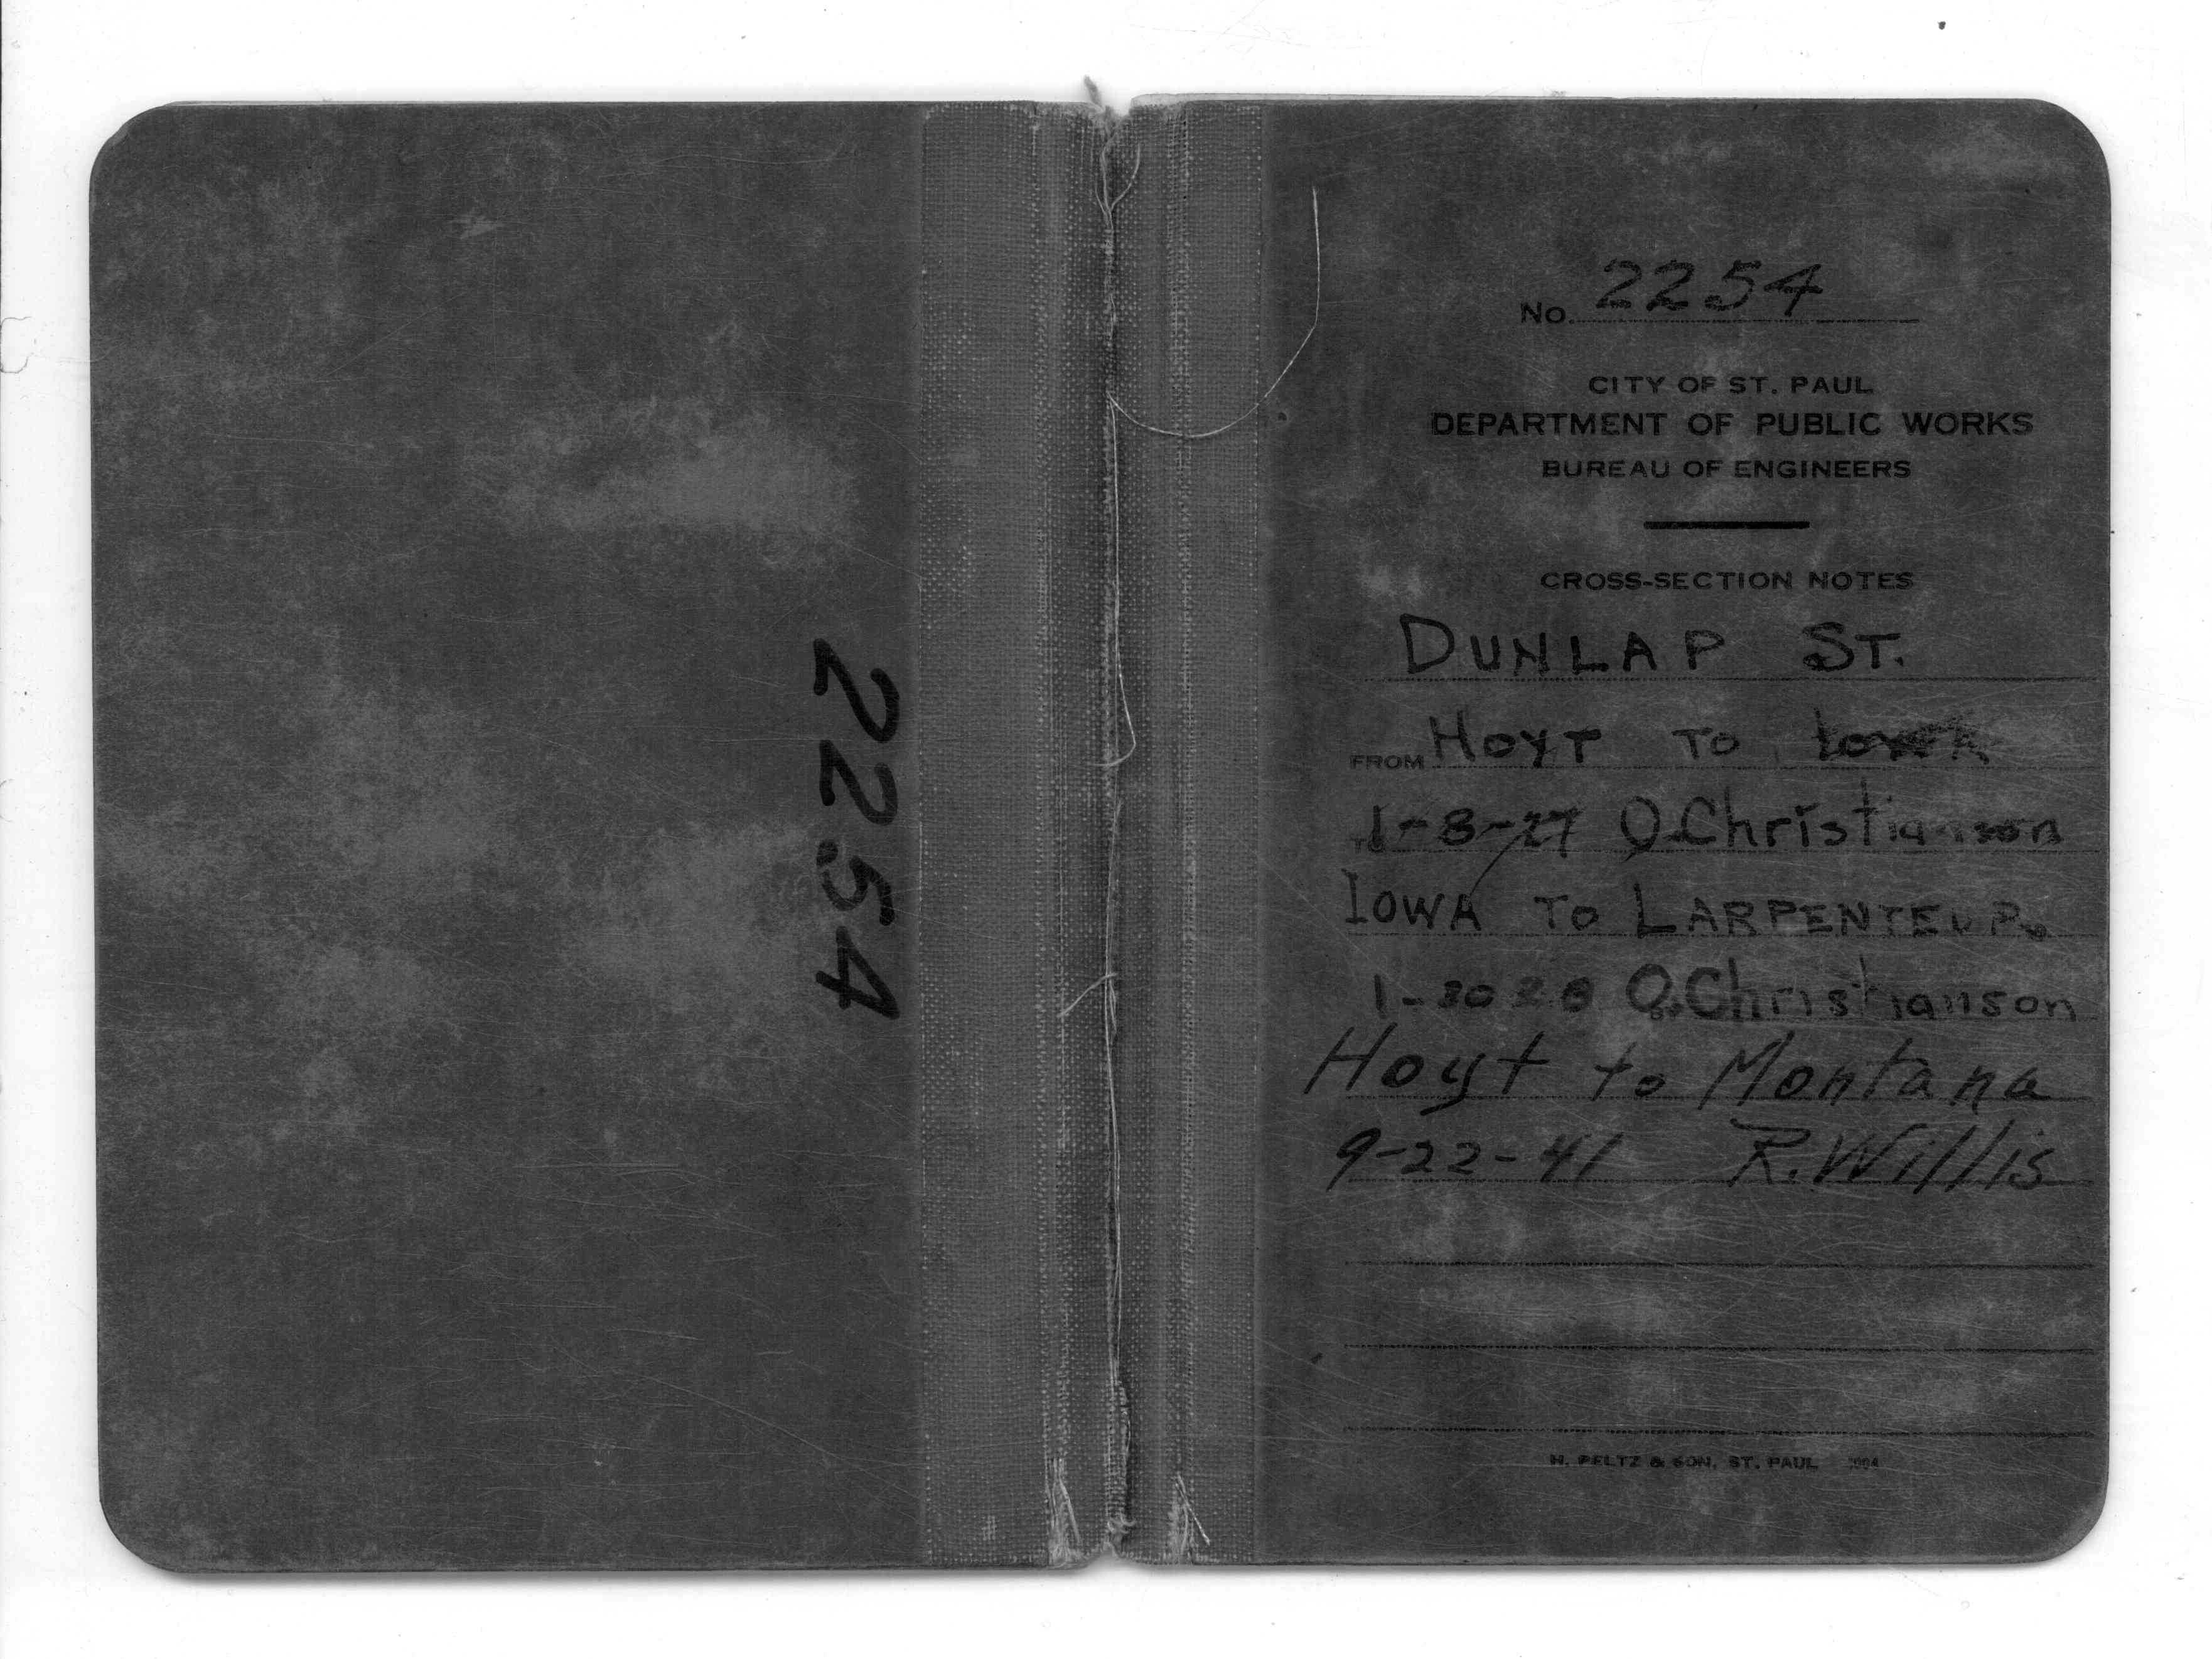 2254
No. 2254
CITY OF ST. PAUL
DEPARTMENT OF PUBLIC WORKS
BUREAU OF ENGINEERS
CROSS-SECTION NOTES
DUNLAP ST.
FROM HOYT TO
TO 1-8-27 O.Christianson
IOWA TO LARPENTEUR.
1-30 28 O.Christianson
Hoyt to Montana
9-22-41 R. Willis
H. PELTZ & SON, ST. PAUL